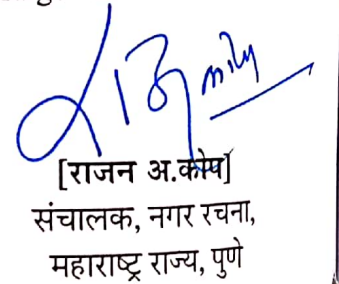 [राजन अ.कोप]
संचालक, नगर रचना,
महाराष्ट्र राज्य, पुणे